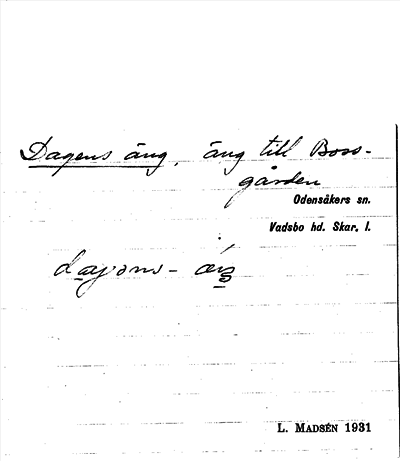 Dagens äng, äng till Boss-
gården
Odensåkers sn.
Vadsbo hd. Skar. l.
L. MADSÉN 1931